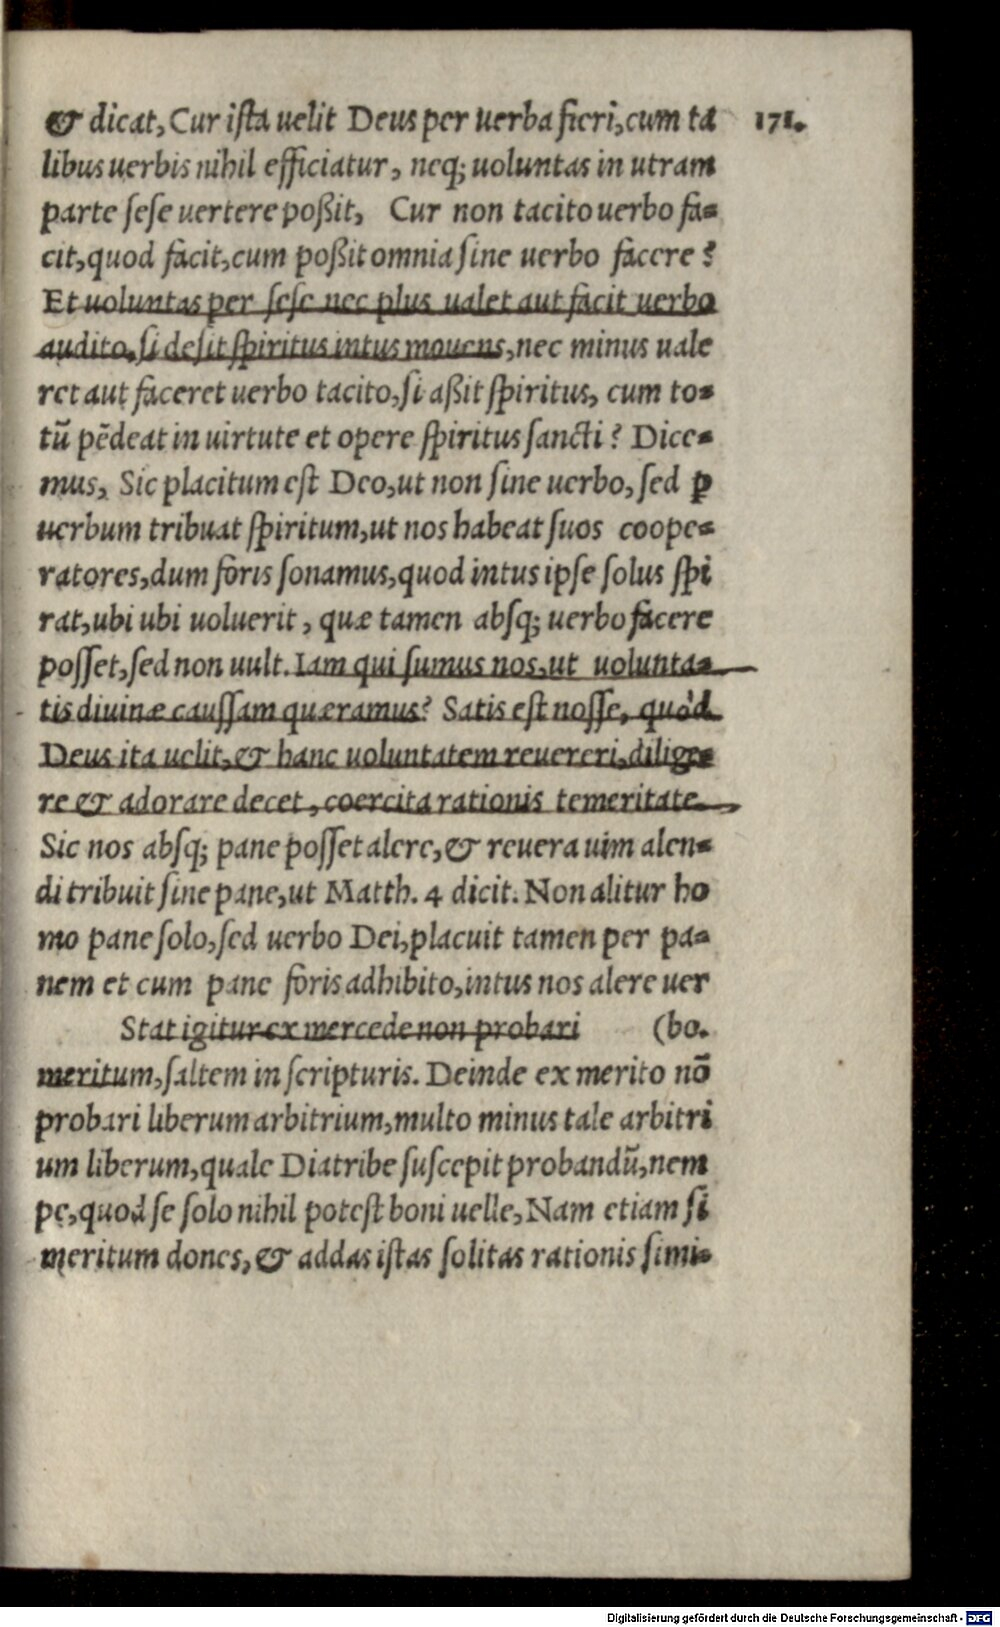 & dicat, Cur ista uelit Deus per uerba fieri, cum ta 171.
libus uerbis nihil efficiatur, neq; uoluntas in utram
parte sese uertere poßit, Cur non tacito uerbo fa=
cit, quod facit, cum poßit omnia sine uerbo facere?
Et uoluntas per sese nec plus ualet aut facit uerbo
audito, si desit spiritus intus mouens, nec minus uale
ret aut faceret uerbo tacito, si aßit spiritus, cum to=
tũ pẽdeat in uirtute et opere spiritus sancti? Dice=
mus, Sic placitum est Deo, ut non sine uerbo, sed ꝑ
uerbum tribuat spiritum, ut nos habeat suos coope=
ratores, dum foris sonamus, quod intus ipse solus spi
rat, ubi ubi uoluerit, quæ tamen absq; uerbo facere
posset, sed non uult. Iam qui sumus nos, ut uolunta=
tis diuinæ caussam quæramus? Satis est nosse, quòd
Deus ita uelit, & hanc uoluntatem reuereri, dilige=
re & adorare decet, coercita rationis temeritate.
Sic nos absq; pane posset alere, & reuera uim alen=
di tribuit sine pane, ut Matth. 4 dicit. Non alitur ho
mo pane solo, sed uerbo Dei, placuit tamen per pa=
nem et cum pane foris adhibito, intus nos alere uer
Stat igitur ex mercede non probari (bo.
meritum, saltem in scripturis. Deinde ex merito nõ
probari liberum arbitrium, multo minus tale arbitri
um liberum, quale Diatribe suscepit probandũ, nem
pe, quod se solo nihil potest boni uelle, Nam etiam si
meritum dones, & addas istas solitas rationis simi=
Digitalisierung gefördert durch die Deutsche Forschungsgemeinschaft - DFG